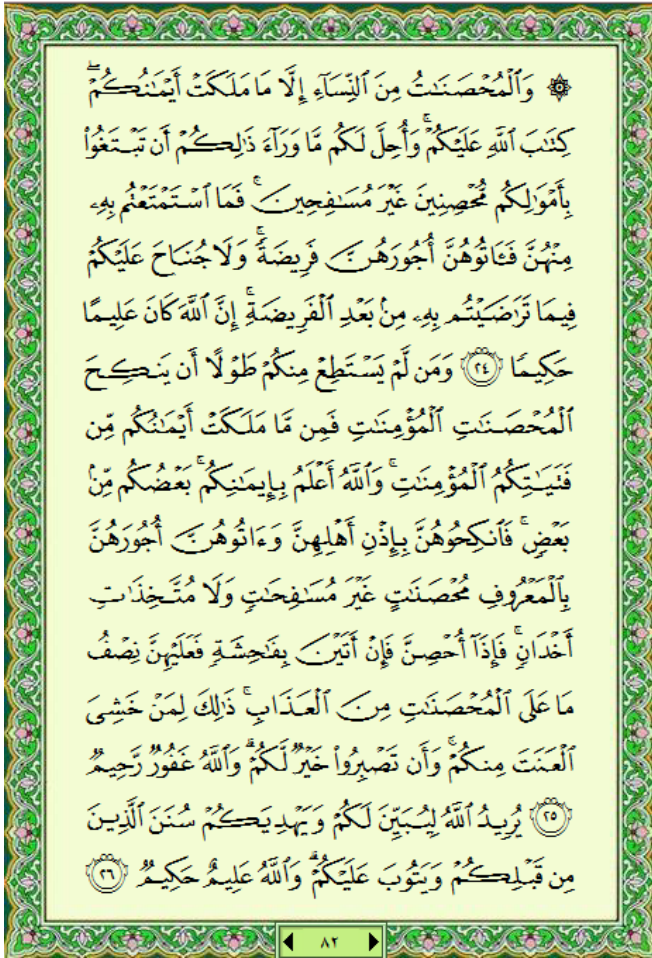 ۞ وَٱلْمُحْصَنَـٰتُ مِنَ ٱلنِّسَآءِ إِلَّا مَا مَلَكَتْ أَيْمَـٰنُكُمْ ۖ
كِتَـٰبَ ٱللَّهِ عَلَيْكُمْ ۚ وَأُحِلَّ لَكُم مَّا وَرَآءَ ذَٰلِكُمْ أَن تَبْتَغُوا۟
بِأَمْوَٰلِكُم مُّحْصِنِينَ غَيْرَ مُسَـٰفِحِينَ ۚ فَمَا ٱسْتَمْتَعْتُم بِهِۦ
مِنْهُنَّ فَـَٔاتُوهُنَّ أُجُورَهُنَّ فَرِيضَةً ۚ وَلَا جُنَاحَ عَلَيْكُمْ
فِيمَا تَرَٰضَيْتُم بِهِۦ مِنۢ بَعْدِ ٱلْفَرِيضَةِ ۚ إِنَّ ٱللَّهَ كَانَ عَلِيمًا
حَكِيمًا ﴿٢٤﴾ وَمَن لَّمْ يَسْتَطِعْ مِنكُمْ طَوْلًا أَن يَنكِحَ
ٱلْمُحْصَنَـٰتِ ٱلْمُؤْمِنَـٰتِ فَمِن مَّا مَلَكَتْ أَيْمَـٰنُكُم مِّن
فَتَيَـٰتِكُمُ ٱلْمُؤْمِنَـٰتِ ۚ وَٱللَّهُ أَعْلَمُ بِإِيمَـٰنِكُم ۚ بَعْضُكُم مِّنۢ
بَعْضٍ ۚ فَٱنكِحُوهُنَّ بِإِذْنِ أَهْلِهِنَّ وَءَاتُوهُنَّ أُجُورَهُنَّ
بِٱلْمَعْرُوفِ مُحْصَنَـٰتٍ غَيْرَ مُسَـٰفِحَـٰتٍ وَلَا مُتَّخِذَٰتِ
أَخْدَانٍ ۚ فَإِذَآ أُحْصِنَّ فَإِنْ أَتَيْنَ بِفَـٰحِشَةٍ فَعَلَيْهِنَّ نِصْفُ
مَا عَلَى ٱلْمُحْصَنَـٰتِ مِنَ ٱلْعَذَابِ ۚ ذَٰلِكَ لِمَنْ خَشِىَ
ٱلْعَنَتَ مِنكُمْ ۚ وَأَن تَصْبِرُوا۟ خَيْرٌ لَّكُمْ ۗ وَٱللَّهُ غَفُورٌ رَّحِيمٌ
﴿٢٥﴾ يُرِيدُ ٱللَّهُ لِيُبَيِّنَ لَكُمْ وَيَهْدِيَكُمْ سُنَنَ ٱلَّذِينَ
مِن قَبْلِكُمْ وَيَتُوبَ عَلَيْكُمْ ۗ وَٱللَّهُ عَلِيمٌ حَكِيمٌ ﴿٢٦﴾
٨٢